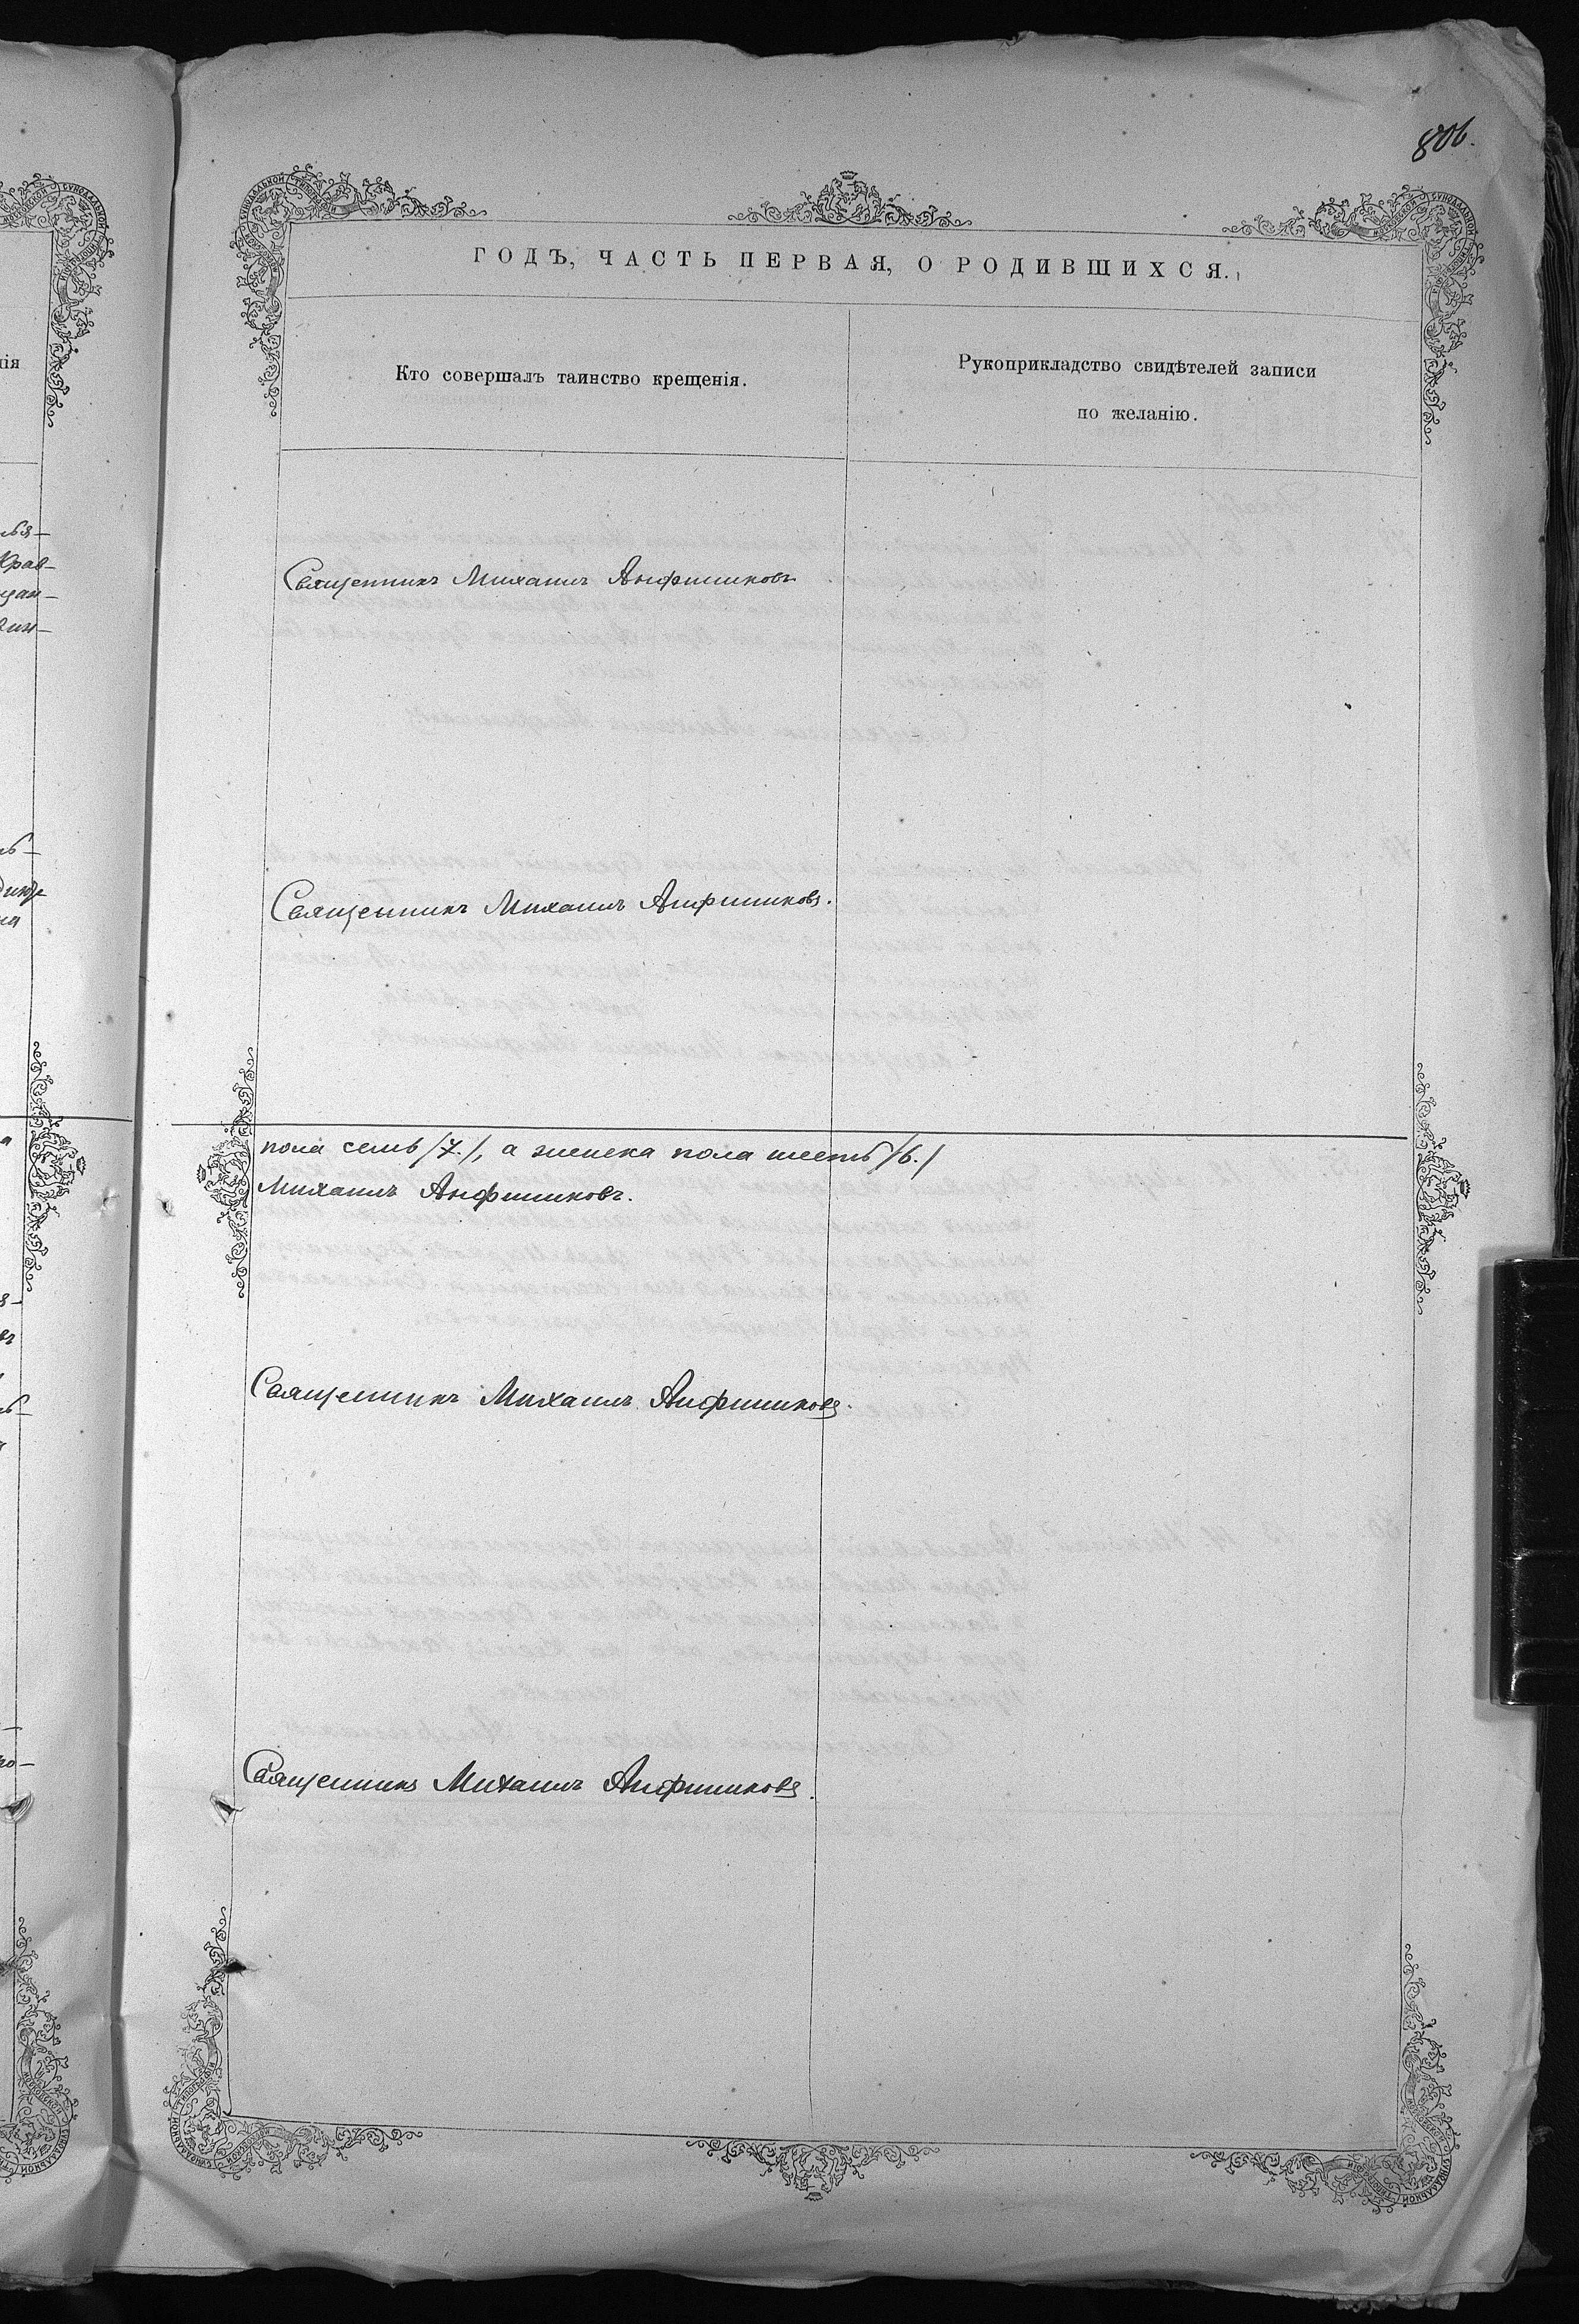 806.
ГОДЪ, ЧАСТЬ ПЕРВАЯ, О РОДИВШИХСЯ.
Кто совершалъ таинство крещенія.
Рукоприкладство свидѣтелей записи
по желанію.
Священникъ Михаилъ Анфиликовъ
Священникъ Михаилъ Анфиликовъ.
пола семь /7./, а женска пола шесть /6./
Михаилъ Анфиликовъ.
Священникъ Михаилъ Анфиликовъ.
Священникъ Михаилъ Анфиликовъ.